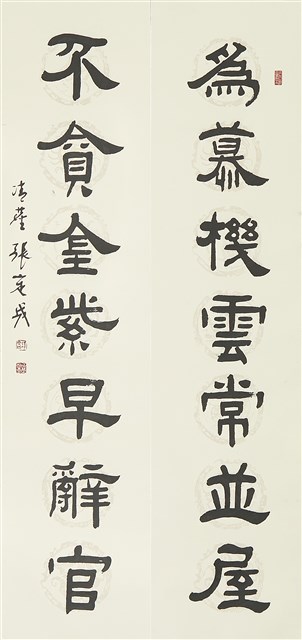 為慕機雲常並屋
不貪金紫早辭官
清華張定成